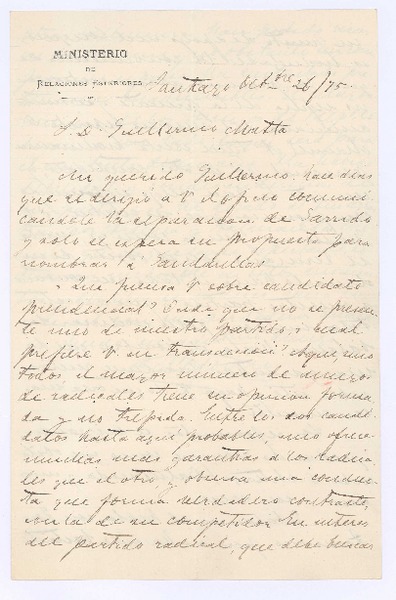 MINISTERIO
DE
RELACIONES EXTERIORES
Santiago Octbre 26/75.
S. D. Guillermo Matta
Mi querido Guillermo: hace dias
que se dirijió a V el oficio comuni
candole la separacion de Garrido
y solo se espera su propuesta para
nombrar a Santanillas
Que piensa V sobre candidato
presidencial? Caso que no se presen
te uno de nuestro partido, i cual
prefiere V en transaccion? Aqui, sino
todos el mayor numero de nuestros
radicales tiene su opinion forma
da y no trepida. Entre los dos candi
datos hasta aqui probables, uno ofrece
muchas mas garantias a los radica
les que el otro, y observa una conduc
ta que forma verdadero contraste
con la de su competidor. En interes
del partido radical, que debe buscar